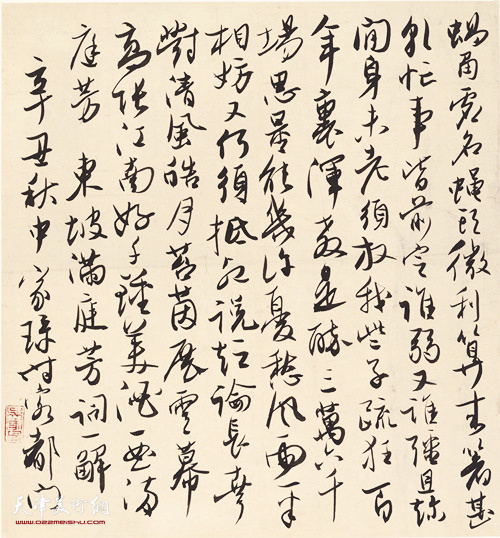 蝸角虛名蠅頭微利算來著甚
乾忙事皆前定誰弱又誰強且趁
閒身未老須放我些子疏狂百
年裏渾教是醉三萬六千
場思量能幾許憂愁風雨一半
相妨又何須抵死說短論長幸
對清風皓月苔茵展雲幕
高張江南好千鍾美酒一曲滿
庭芳 東坡滿庭芳詞一解
辛丑秋中 家琭時客都門
天津美术网
www.022meishu.com